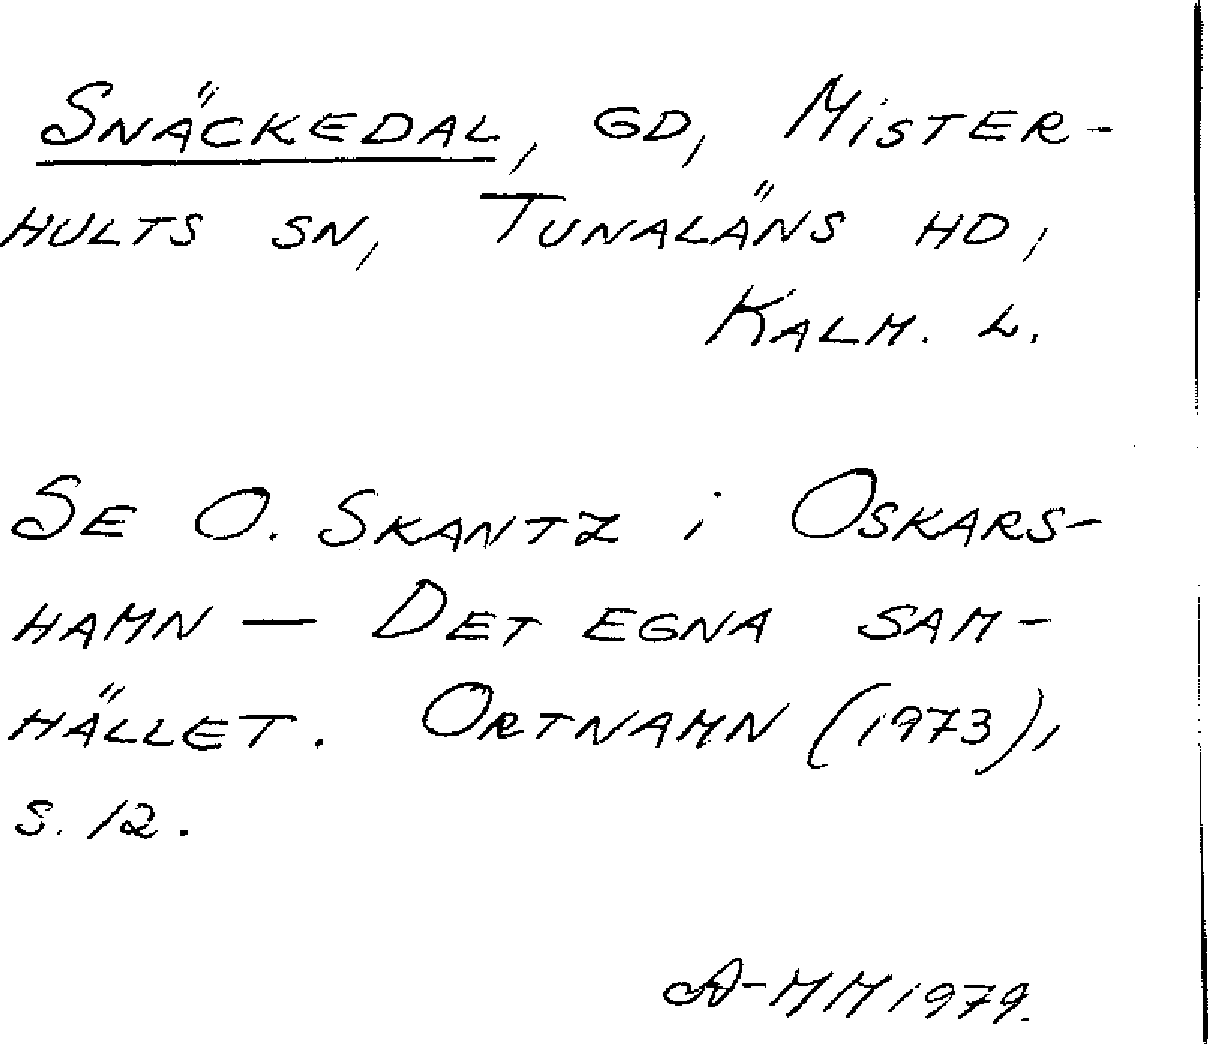 SNÄCKEDAL, GD, MISTER-
HULTS SN, TUNALÄNS HD,
KALM. L.
SE O. SKANTZ i OSKARS-
HAMN — DET EGNA SAM-
HÄLLET. ORTNAMN (1973),
S. 12.
A-MM 1979.